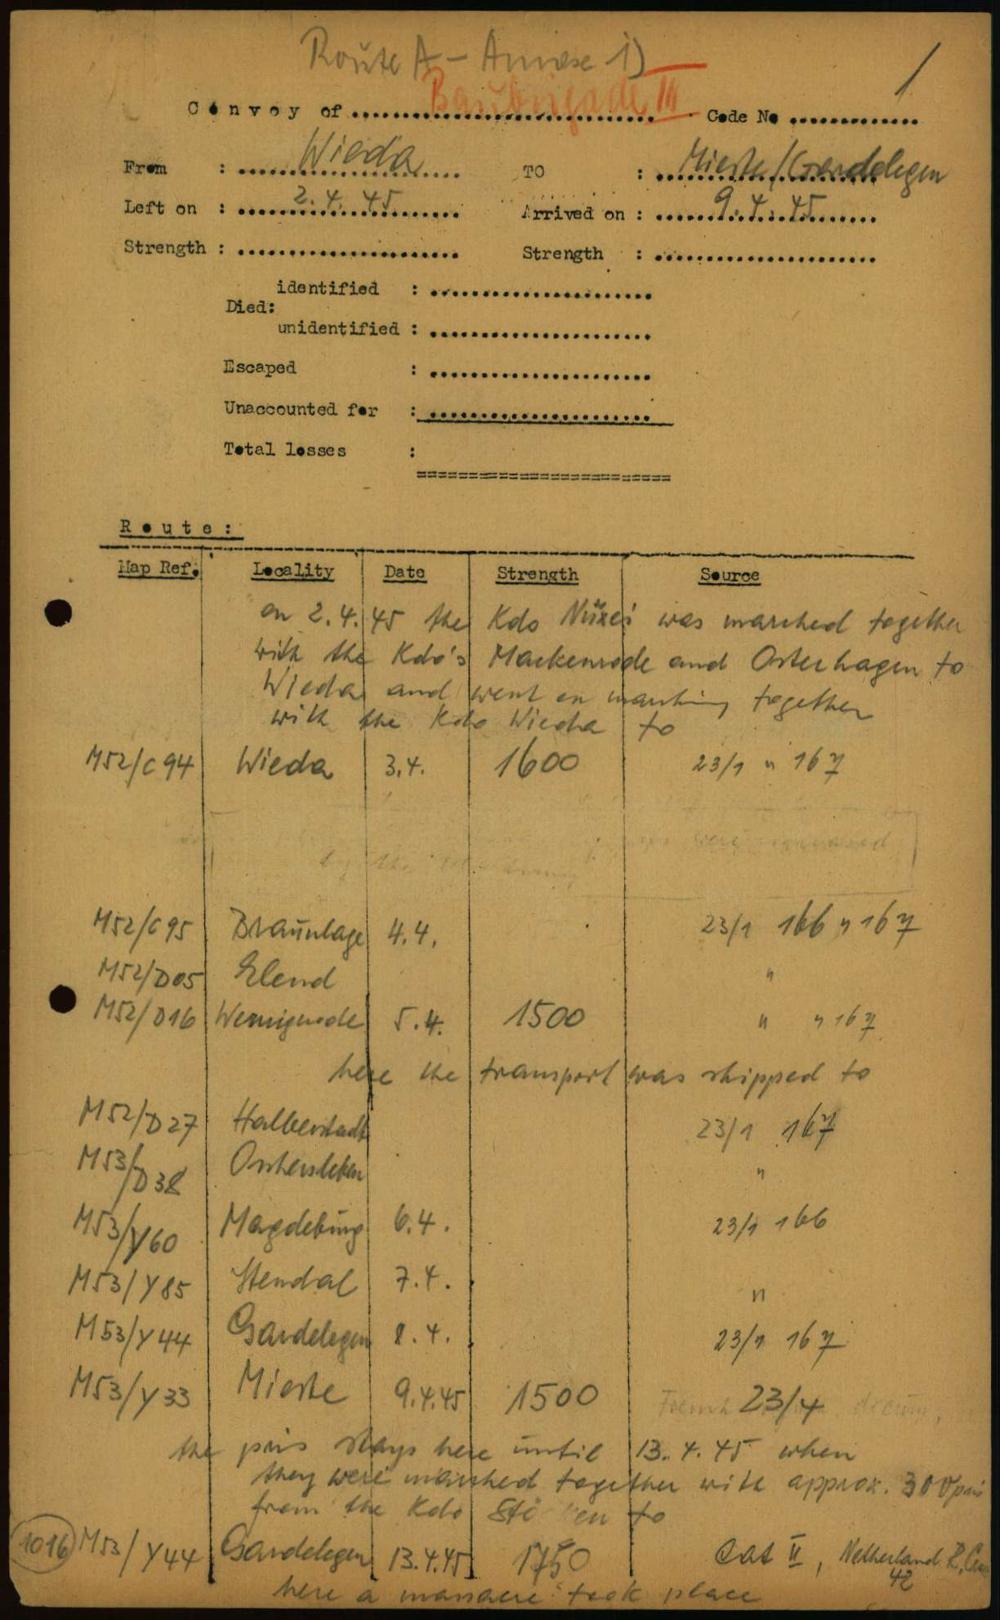 Route A - Annexe 1)
1
Convoy of Baubrigade III Code No
From : Wieda TO : Mieste/Gardelegen
Left on : 2.4.45 Arrived on : 9.4.45
Strength : Strength :
identified :
Died:
unidentified :
Escaped :
Unaccounted for :
Total losses :
Route:
Map Ref. Locality Date Strength Source
on 2.4.45 the Kdo Nüxei was marched together
with the Kdo's Mackenrode and Osterhagen to
Wieda and went on marching together
with the Kdo Wieda to
M52/C94 Wieda 3.4. 1600 23/1 " 167
were
by the
M52/C95 Braunlage 4.4. 23/1 166 " 167
M52/D05 Elend "
M52/D16 Wernigrode 5.4. 1500 " " 167
here the transport was shipped to
M52/D27 Halberstadt 23/1 167
M53/D38 Oschersleben "
M53/Y60 Magdeburg 6.4. 23/1 166
M53/Y85 Stendal 7.4. "
M53/Y44 Gardelegen 8.4. 23/1 167
M53/Y33 Mieste 9.4.45 1500 23/4
the pris stays here until 13.4.45 when
they were marched together with approx. 300 pris
from the Kdo Stöcken to
1016 M53/Y44 Gardelegen 13.4.45 1750 Cat II, Netherland R.
42
here a massacre took place